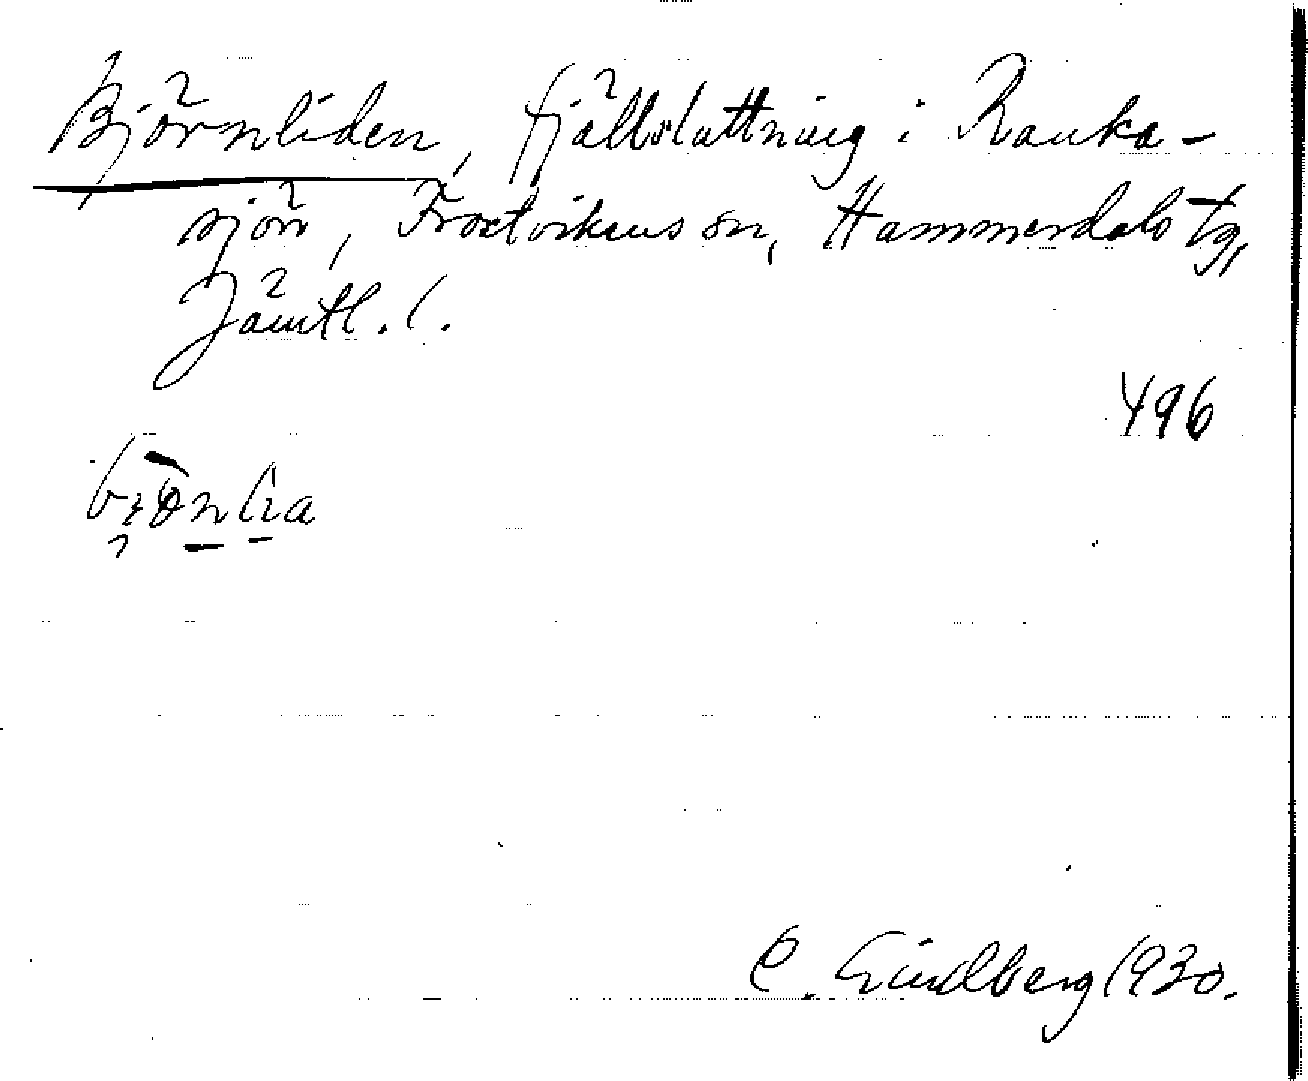 Björnliden, fjällslåttning i Rauka-
sjön, Frostvikens sn, Hammerdals tg,
Jämtl. l.
496
C. Lindberg 1930.